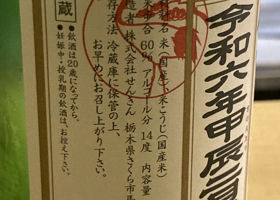 令和六年甲辰二
原材料名 米(国産)、米こうじ(国産米)
精米歩合 60% アルコール分 14度 内容量
製造者 株式会社せんきん 栃木県さくら市馬
保存方法 冷蔵庫に保管の上、
お早めにお召し上がり下さい。
蔵
●飲酒は20歳になってから。
●妊娠中・授乳期の飲酒は、お控え下さい。